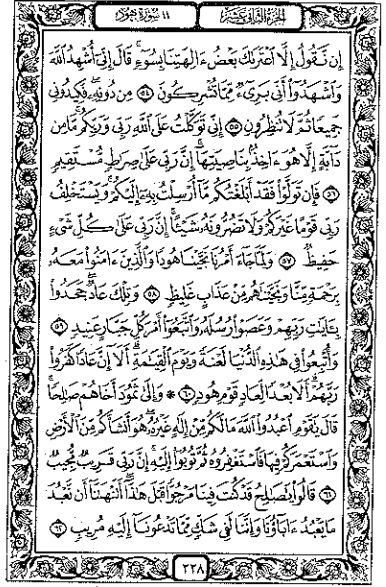 الجزء الثاني عشر ١١ سورة هود
إِن نَّقُولُ إِلَّا ٱعْتَرَىٰكَ بَعْضُ ءَالِهَتِنَا بِسُوٓءٍۗ قَالَ إِنِّىٓ أُشْهِدُ ٱللَّهَ
وَٱشْهَدُوٓا۟ أَنِّى بَرِىٓءٌ مِّمَّا تُشْرِكُونَ ٥٤ مِن دُونِهِۦۖ فَكِيدُونِى
جَمِيعًا ثُمَّ لَا تُنظِرُونِ ٥٥ إِنِّى تَوَكَّلْتُ عَلَى ٱللَّهِ رَبِّى وَرَبِّكُمۚ مَّا مِن
دَآبَّةٍ إِلَّا هُوَ ءَاخِذٌۢ بِنَاصِيَتِهَآۚ إِنَّ رَبِّى عَلَىٰ صِرَٰطٍ مُّسْتَقِيمٍ
٥٦ فَإِن تَوَلَّوْا۟ فَقَدْ أَبْلَغْتُكُم مَّآ أُرْسِلْتُ بِهِۦٓ إِلَيْكُمْۚ وَيَسْتَخْلِفُ
رَبِّى قَوْمًا غَيْرَكُمْ وَلَا تَضُرُّونَهُۥ شَيْـًٔاۚ إِنَّ رَبِّى عَلَىٰ كُلِّ شَىْءٍ
حَفِيظٌ ٥٧ وَلَمَّا جَآءَ أَمْرُنَا نَجَّيْنَا هُودًا وَٱلَّذِينَ ءَامَنُوا۟ مَعَهُۥ
بِرَحْمَةٍ مِّنَّا وَنَجَّيْنَٰهُم مِّنْ عَذَابٍ غَلِيظٍ ٥٨ وَتِلْكَ عَادٌۖ جَحَدُوا۟
بِـَٔايَٰتِ رَبِّهِمْ وَعَصَوْا۟ رُسُلَهُۥ وَٱتَّبَعُوٓا۟ أَمْرَ كُلِّ جَبَّارٍ عَنِيدٍ ٥٩
وَأُتْبِعُوا۟ فِى هَٰذِهِ ٱلدُّنْيَا لَعْنَةً وَيَوْمَ ٱلْقِيَٰمَةِۗ أَلَآ إِنَّ عَادًا كَفَرُوا۟
رَبَّهُمْۗ أَلَا بُعْدًا لِّعَادٍ قَوْمِ هُودٍ ٦٠ * وَإِلَىٰ ثَمُودَ أَخَاهُمْ صَٰلِحًاۚ
قَالَ يَٰقَوْمِ ٱعْبُدُوا۟ ٱللَّهَ مَا لَكُم مِّنْ إِلَٰهٍ غَيْرُهُۥۖ هُوَ أَنشَأَكُم مِّنَ ٱلْأَرْضِ
وَٱسْتَعْمَرَكُمْ فِيهَا فَٱسْتَغْفِرُوهُ ثُمَّ تُوبُوٓا۟ إِلَيْهِۚ إِنَّ رَبِّى قَرِيبٌ مُّجِيبٌ
٦١ قَالُوا۟ يَٰصَٰلِحُ قَدْ كُنتَ فِينَا مَرْجُوًّا قَبْلَ هَٰذَآۖ أَتَنْهَىٰنَآ أَن نَّعْبُدَ
مَا يَعْبُدُ ءَابَآؤُنَا وَإِنَّنَا لَفِى شَكٍّ مِّمَّا تَدْعُونَآ إِلَيْهِ مُرِيبٍ ٦٢
٢٢٨